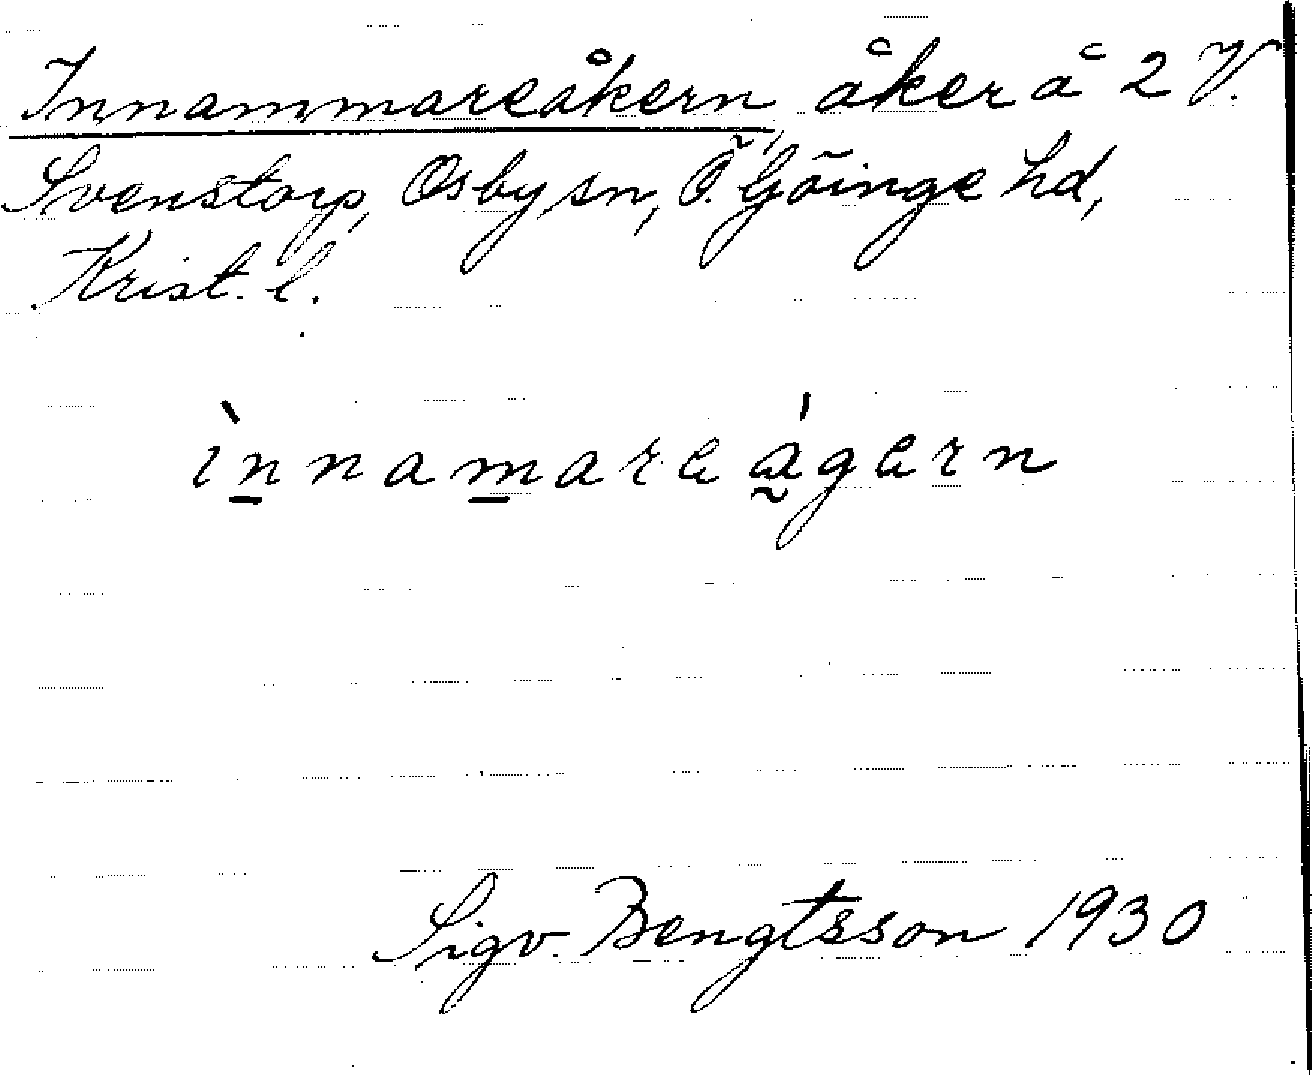 Innammareåkern, åker å 2 V.
Svenstorp, Osby sn, Ö. Göinge hd,
Krist. l.
ìnnamareágern
Sigv. Bengtsson 1930